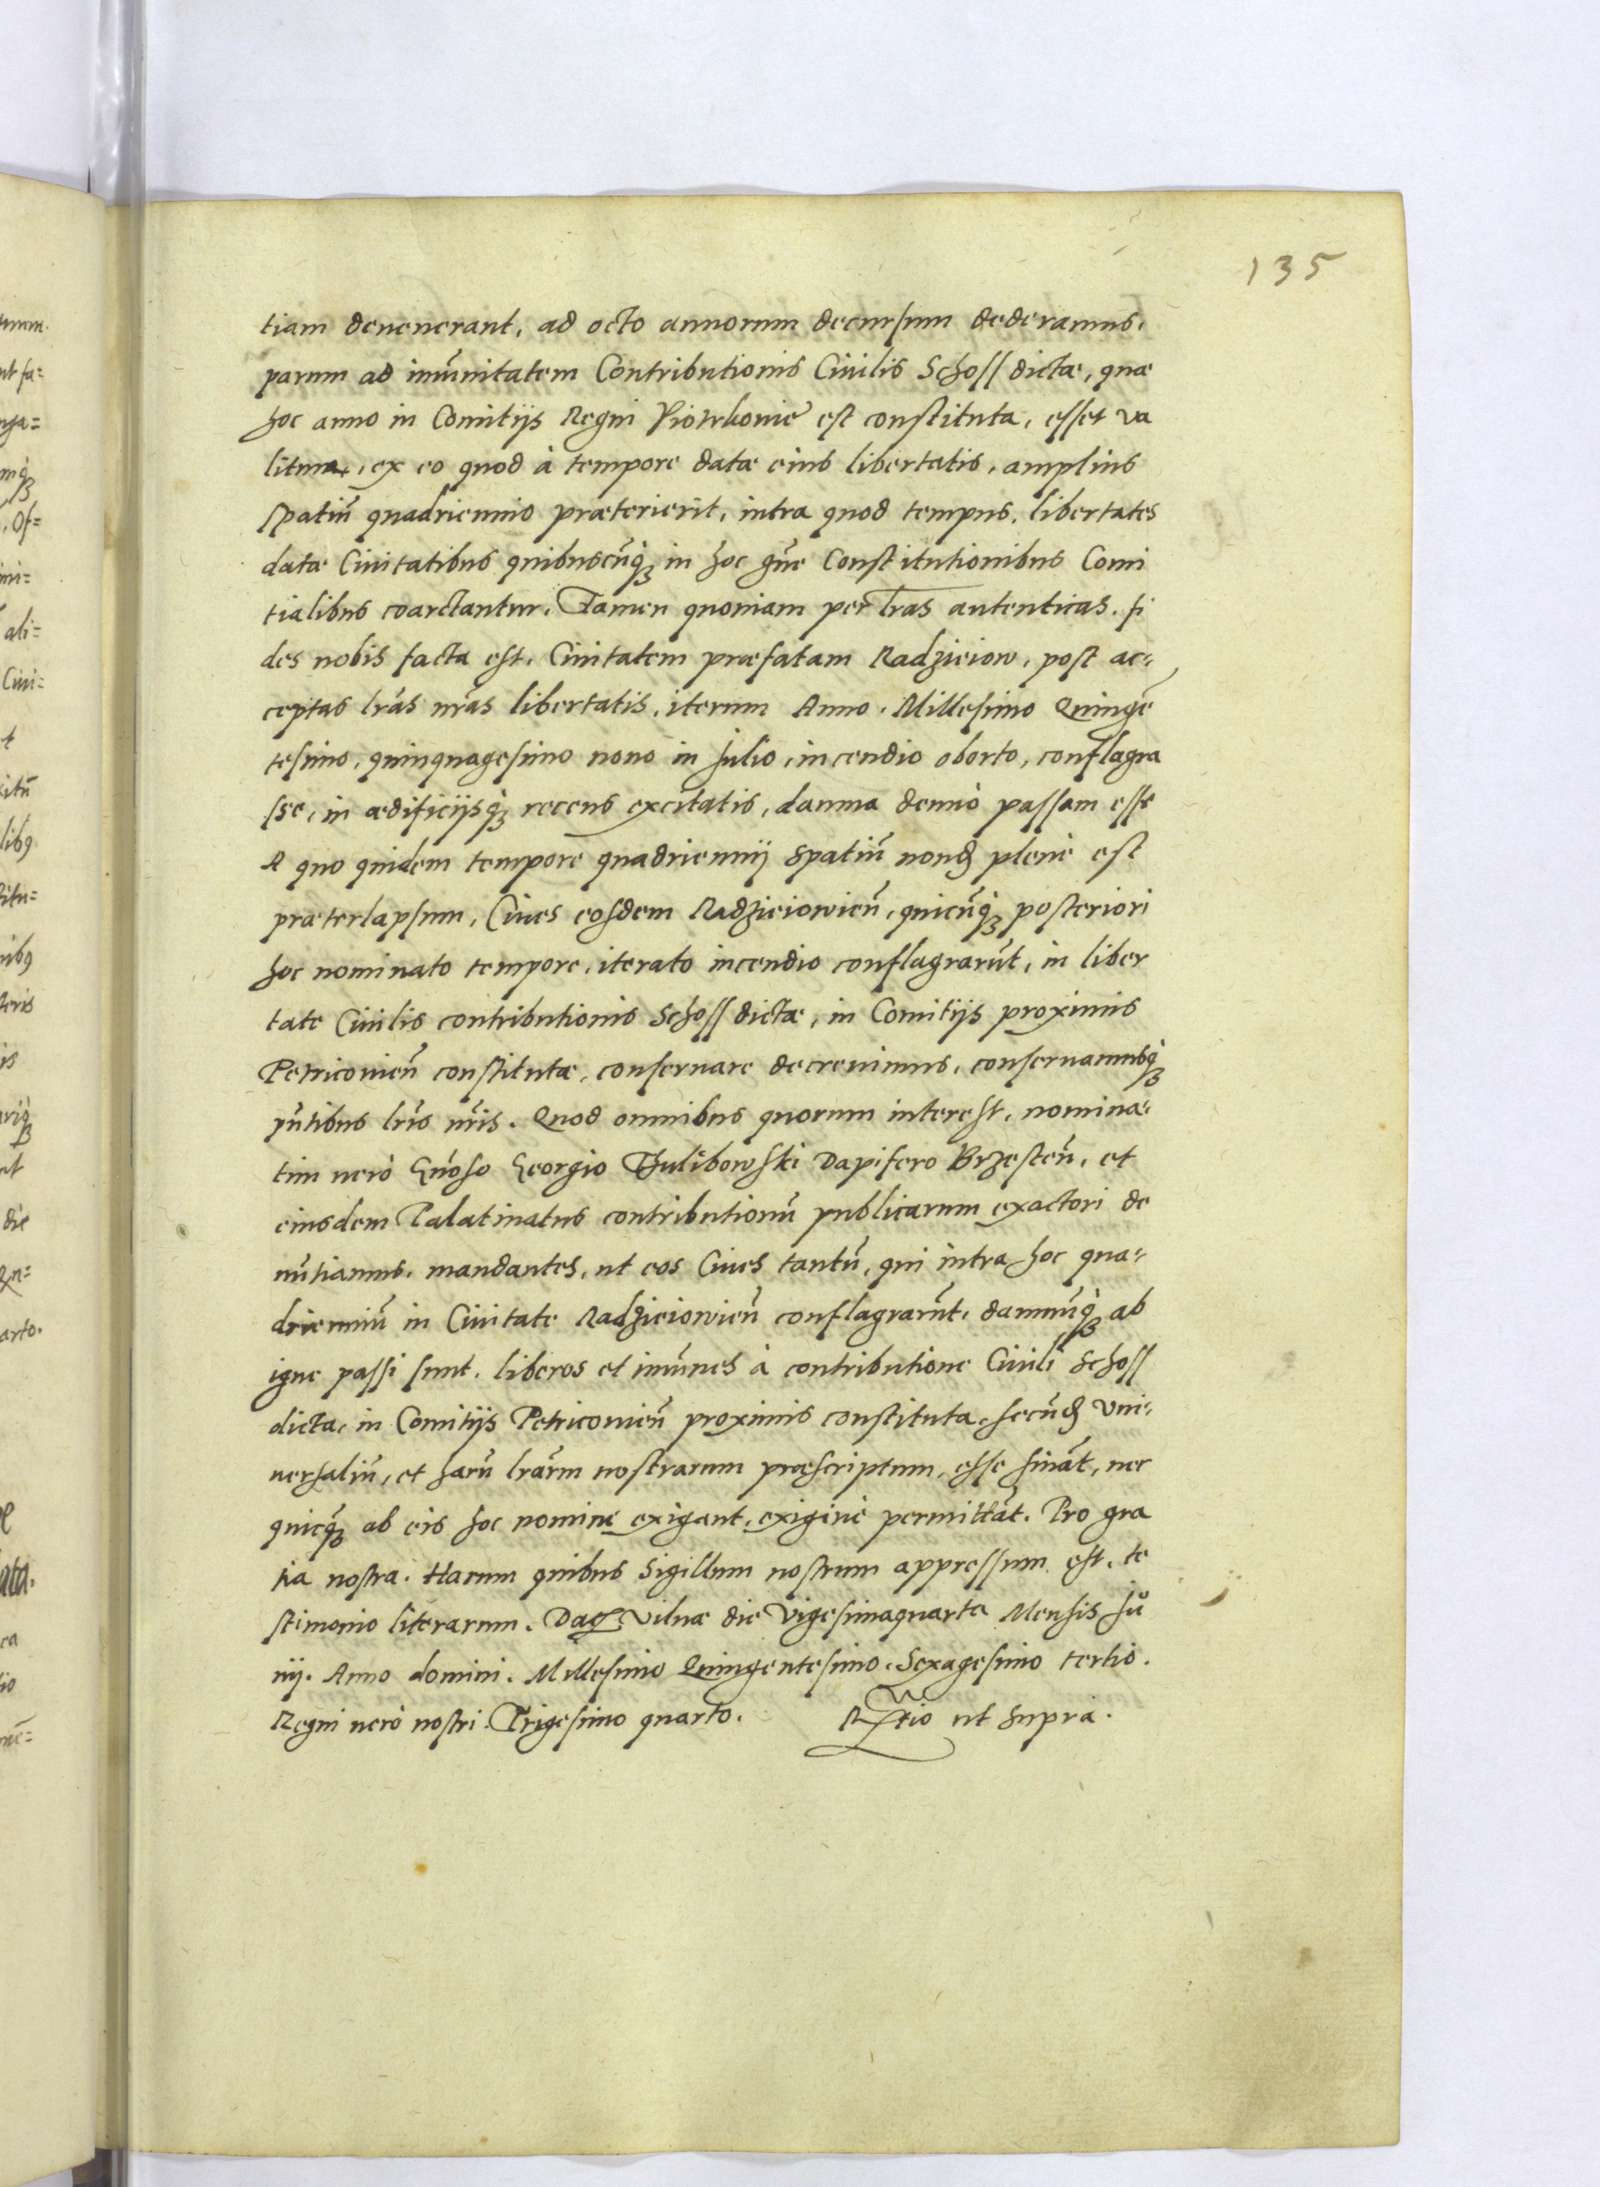 135
tiam deuenerant, ad octo annorum decursum dederamus,
parum ad imũnitatem Contributionis Ciuilis Schoss dictæ, quæ
hoc anno in Comitijs Regni Piotrkouiẽ est constituta, esset va
litura, ex eo quod à tempore datæ eius libertatis, amplius
spatiũ quadriennio præterierit, intra quod tempus, libertates
datæ Ciuitatibus quibuscũq; in hoc gñe Constitutionibus Comi
tialibus coarctantur. Tamen quoniam per lras autenticas, fi
des nobis facta est, Ciuitatem præfatam Radzieiow, post ac-
ceptas lr̃as nr̃as libertatis, iterum Anno Millesimo Quingẽ
tesimo, quinquagesimo nono in Julio, incendio oborto, conflagra
sse, in ædificijsq; recens excitatis, damna denuò passam esse
A quo quidem tempore quadriennij spatiũ nond plenè est
præterlapsum, Ciues eosdem Radzieiowieñ, quicũq; posteriori
hoc nominato tempore, iterato incendio conflagrarũt, in liber
tate Ciuilis contributionis Schoss dictæ, in Comitijs proximis
Petricouieñ constitutæ, conseruare decreuimus, conseruamusq;
pñtibus lr̃is nr̃is. Quod omnibus quorum interest, nomina-
tim uerò Gñoso Georgio Thulibowski Dapifero Brzesteñ, et
eiusdem Palatinatus contributionũ publicarum exactori de
nũtiamus, mandantes, ut eos Ciues tantũ, qui intra hoc qua-
drienniũ in Ciuitate Radzieiowieñ conflagrarũt, damnũq; ab
igne passi sunt, liberos et imũnes à contributione Ciuili Schoss
dicta, in Comitijs Petricouieñ proximis constituta, secũd Vni-
uersaliũ, et harũ lr̃arum nostrarum præscriptum, esse sinãt, nec
quicq; ab eis hoc nomine exigant, exigiuè permittãt. Pro gra
tia nostra. Harum quibus Sigillum nostrum appressum est, te
stimonio literarum. Dat Vilnæ die Vigesimaquarta Mensis Ju
nij. Anno domini. Millesimo Quingentesimo, Sexagesimo tertio.
Regni uerò nostri Trigesimo quarto. Rltio ut supra.